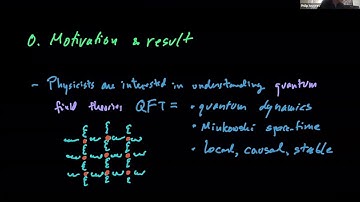 0. Motivation & result
- Physicists are interested in understanding quantum
field theories QFT = • quantum dynamics
• Minkowski space-time
• local, causal, stable